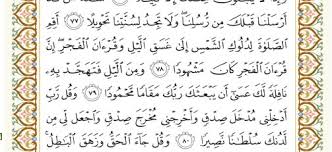 أَرْسَلْنَا قَبْلَكَ مِن رُّسُلِنَا ۖ وَلَا تَجِدُ لِسُنَّتِنَا تَحْوِيلًا ٧٧ أَقِمِ
ٱلصَّلَوٰةَ لِدُلُوكِ ٱلشَّمْسِ إِلَىٰ غَسَقِ ٱلَّيْلِ وَقُرْءَانَ ٱلْفَجْرِ ۖ إِنَّ
قُرْءَانَ ٱلْفَجْرِ كَانَ مَشْهُودًا ٧٨ وَمِنَ ٱلَّيْلِ فَتَهَجَّدْ بِهِۦ
نَافِلَةً لَّكَ عَسَىٰٓ أَن يَبْعَثَكَ رَبُّكَ مَقَامًا مَّحْمُودًا ٧٩ وَقُل رَّبِّ
أَدْخِلْنِى مُدْخَلَ صِدْقٍ وَأَخْرِجْنِى مُخْرَجَ صِدْقٍ وَٱجْعَل لِّى مِن
لَّدُنكَ سُلْطَـٰنًا نَّصِيرًا ٨٠ وَقُلْ جَآءَ ٱلْحَقُّ وَزَهَقَ ٱلْبَـٰطِلُ ۚ